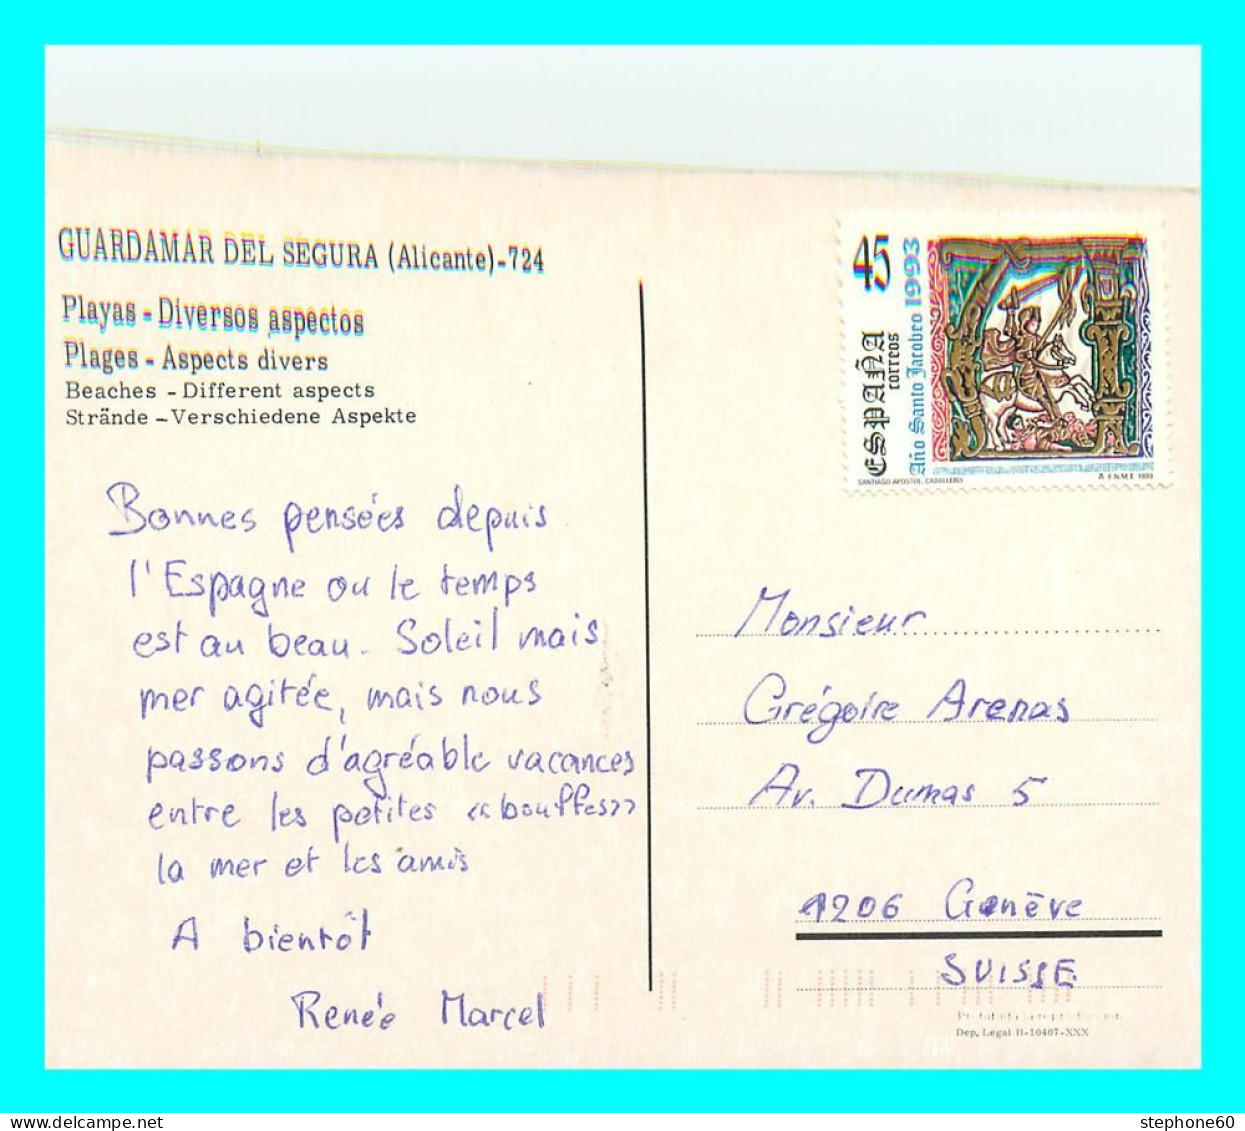 GUARDAMAR DEL SEGURA (Alicante)-724
Playas - Diversos aspectos
Plages - Aspects divers
Beaches - Different aspects
Strände - Verschiedene Aspekte
Bonnes pensées depuis
l'Espagne ou le temps
est au beau. Soleil mais
mer agitée, mais nous
passons d'agréable vacances
entre les petites «bouffes»
la mer et les amis
A bientôt
Renée Marcel
45
ESPAÑA
correos
Año Santo Jacobeo 1993
SANTIAGO APOSTOL. CABALLERO
F.N.M.T. 1993
Monsieur
Grégoire Arenas
Av. Dumas 5
1206 Genève
SUISSE
Prohibida la reproducción
Dep. Legal B-10407-XXX
stephone60